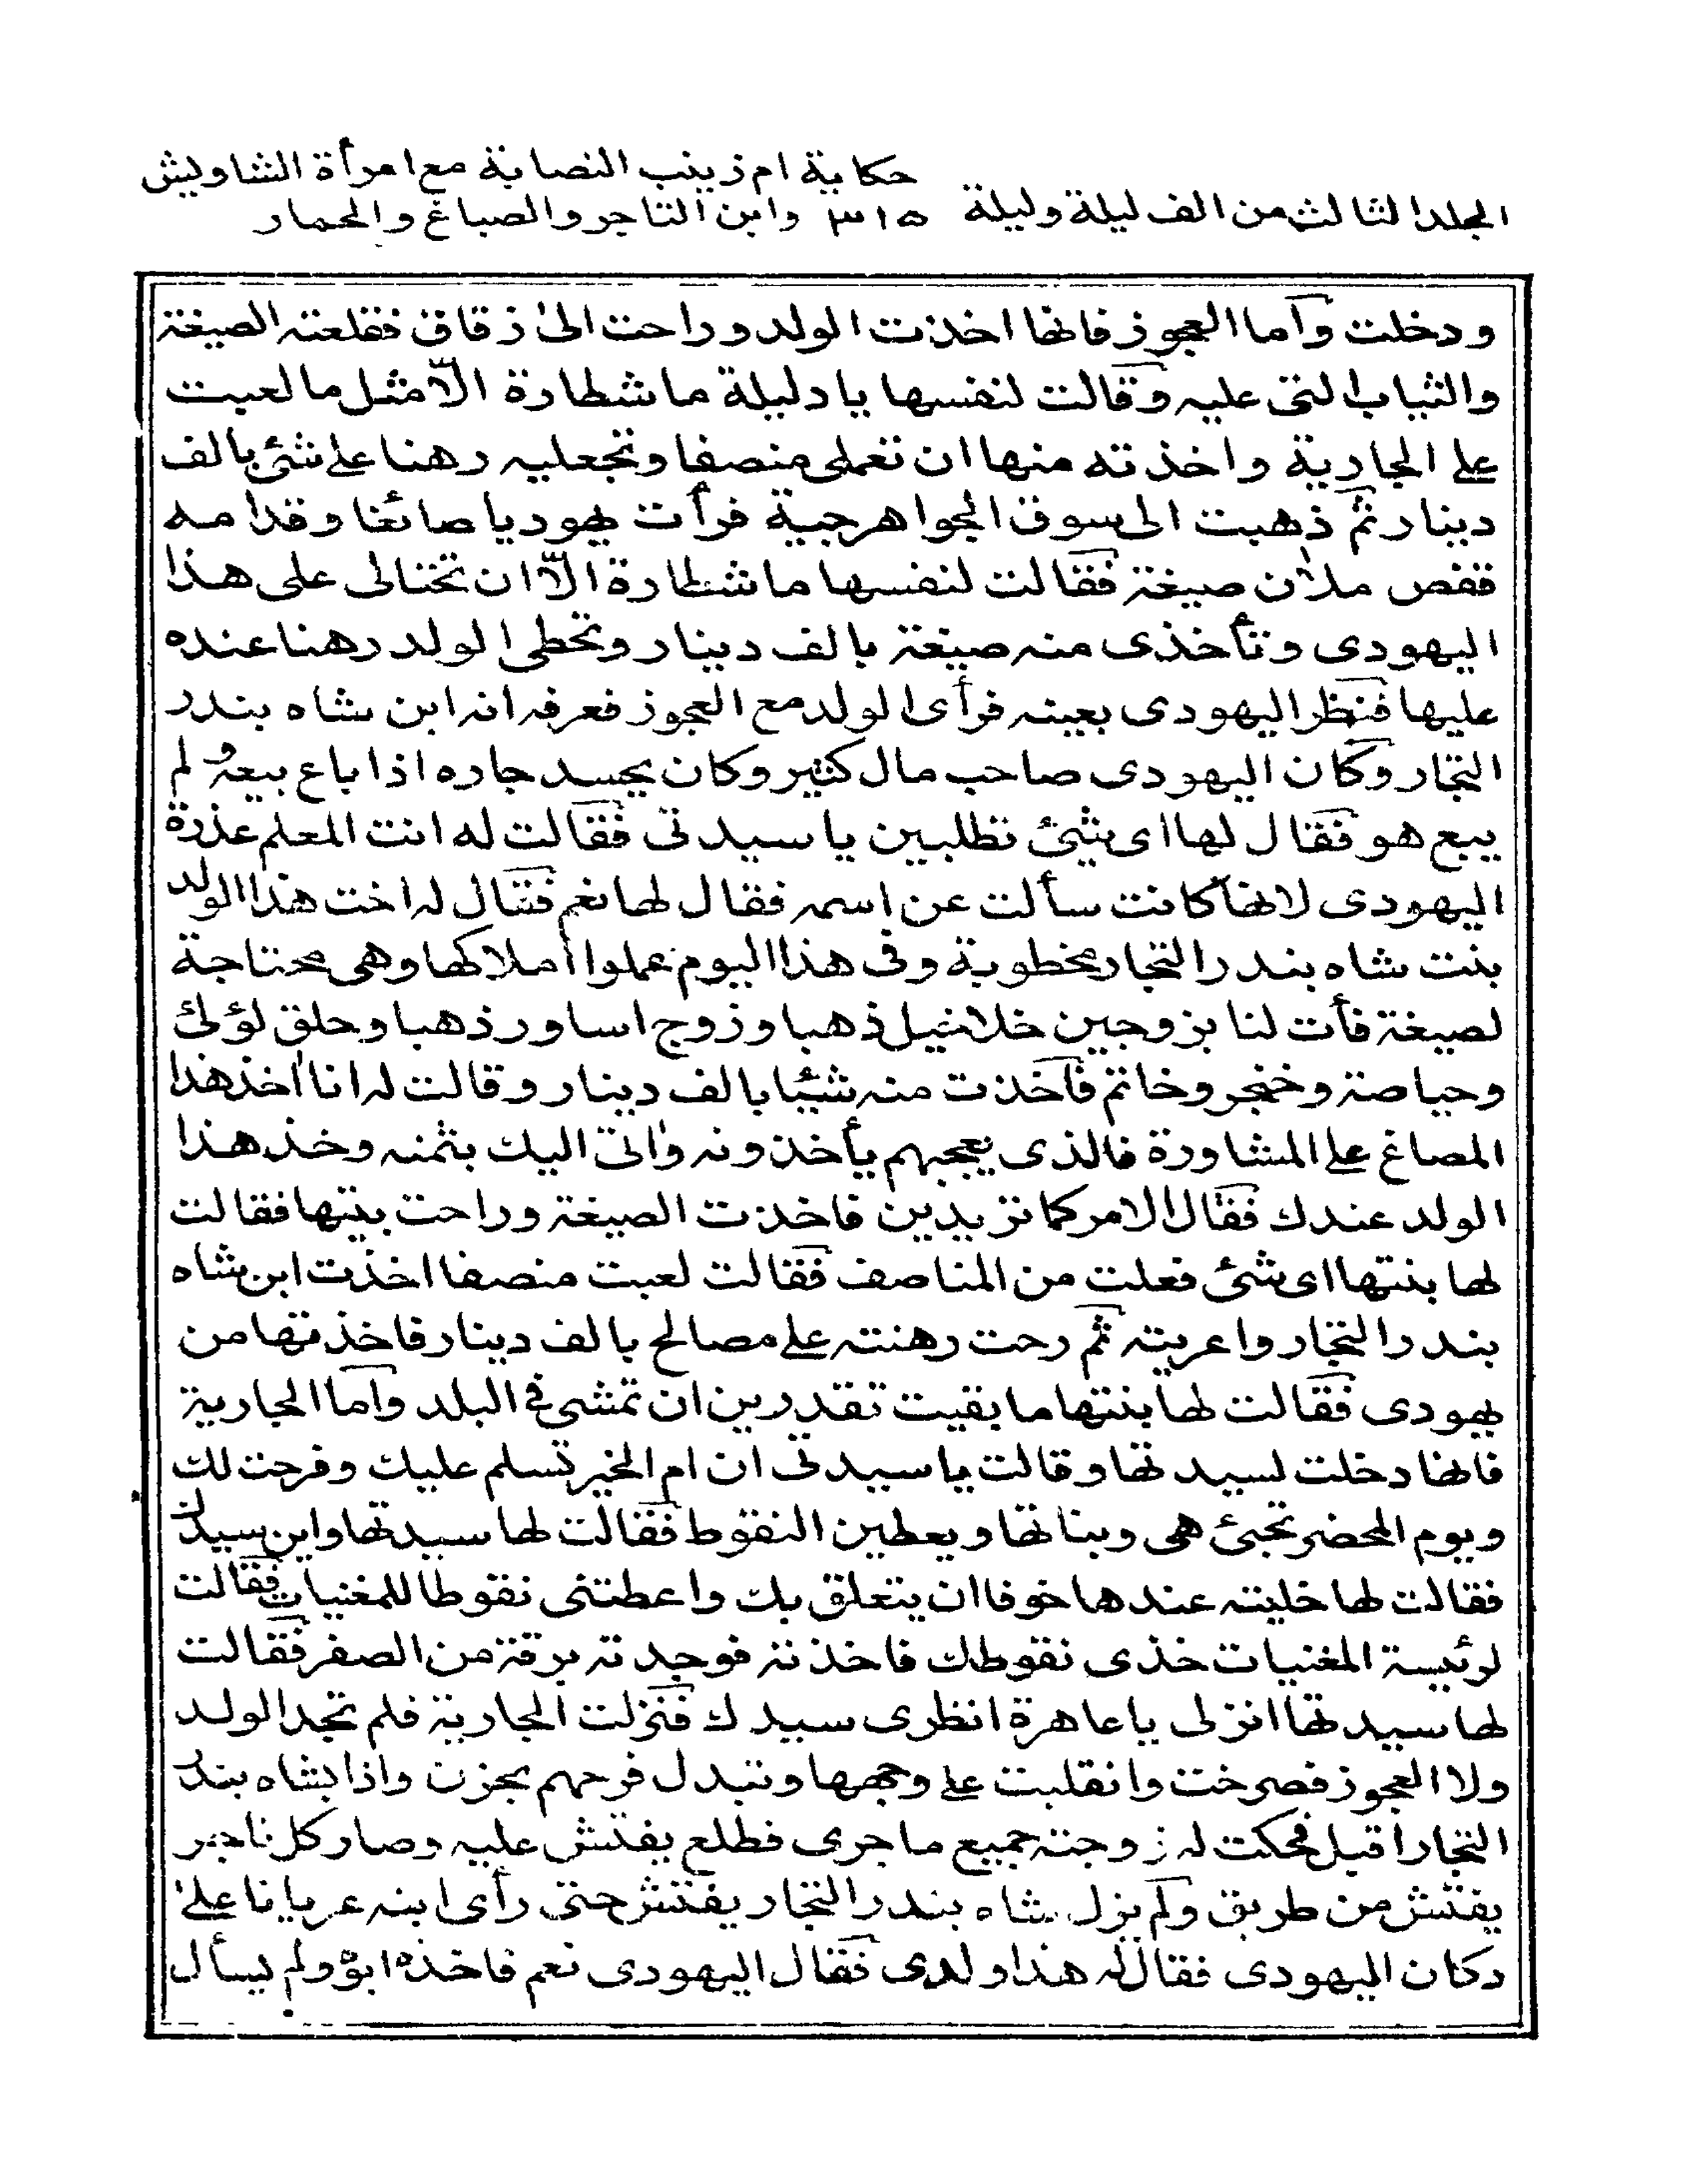 حكاية ام زينب النصابة مع امرأة الشاويش
المجلد الثالث من الف ليلة وليلة ٣١٥ وابن التاجر والصباغ والحمار
ودخلت وأما العجوز فانها اخذت الولد وراحت الى زقاق فقلعته الصيغة
والثياب التى عليه وقالت لنفسها يا دليلة ما شطارة الّا مثل ما لعبت
على الجارية واخذته منها ان تعملى منصفا وتجعليه رهنا على شئ بالف
دينار ثمّ ذهبت الى سوق الجواهرجية فرأت يهوديا صائغا وقدامه
قفص ملآن صيغة فقالت لنفسها ما شطارة الّا ان تختالى على هذا
اليهودى وتأخذى منه صيغة بالف دينار وتحطى الولد رهنا عنده
عليها فنظر اليهودى بعينه فرأى الولد مع العجوز فعرفه انه ابن شاه بندر
التجار وكان اليهودى صاحب مال كثير وكان يحسد جاره اذا باع بيعة ولم
يبع هو فقال لها اى شئ تطلبين يا سيدتى فقالت له انت المعلم عذرة
اليهودى لانها كانت سألت عن اسمه فقال لها نعم فقال له اخت هذا الولد
بنت شاه بندر التجار مخطوبة وفى هذا اليوم عملوا أملاكها وهى محتاجة
لصيغة فأت لنا بزوجين خلاخيل ذهبا وزوج اساور ذهبا وحلق لؤلئ
وحياصة وخنجر وخاتم فأخذت منه شيًا بالف دينار وقالت له انا آخذ هذا
المصاغ على المشاورة فالذى يعجبهم يأخذونه وآتى اليك بثمنه وخذ هذا
الولد عندك فقال الامر كما تريدين فاخذت الصيغة وراحت بيتها فقالت
لها بنتها اى شئ فعلت من المناصف فقالت لعبت منصفا اخذت ابن شاه
بندر التجار واعريته ثمّ رحت رهنته على مصالح بالف دينار فاخذتها من
يهودى فقالت لها بنتها ما بقيت تقدرين ان تمشى فى البلد وأما الجارية
فانها دخلت لسيدتها وقالت يا سيدتى ان ام الخير تسلم عليك وفرحت لك
ويوم المحضر تجئ هى وبناتها ويعطين النقوط فقالت لها سيدتها واين سيدك
فقالت لها خليته عندها خوفا ان يتعلق بك واعطتنى نقوطا للمغنيات فقالت
لرئيسة المغنيات خذى نقوطك فاخذته فوجدته برقة من الصفر فقالت
لها سيدتها انزلى يا عاهرة انظرى سيدك فنزلت الجارية فلم تجد الولد
ولا العجوز فصرخت وانقلبت على وجهها وتبدل فرحهم بحزن واذا بشاه بندر
التجار اقبل فحكت له زوجته جميع ما جرى فطلع يفتش عليه وصار كل تاجر
يفتش من طريق ولم يزل شاه بندر التجار يفتش حتى رأى ابنه عريانا على
دكان اليهودى فقال له هذا ولدى فقال اليهودى نعم فاخذه ابوه ولم يسأل